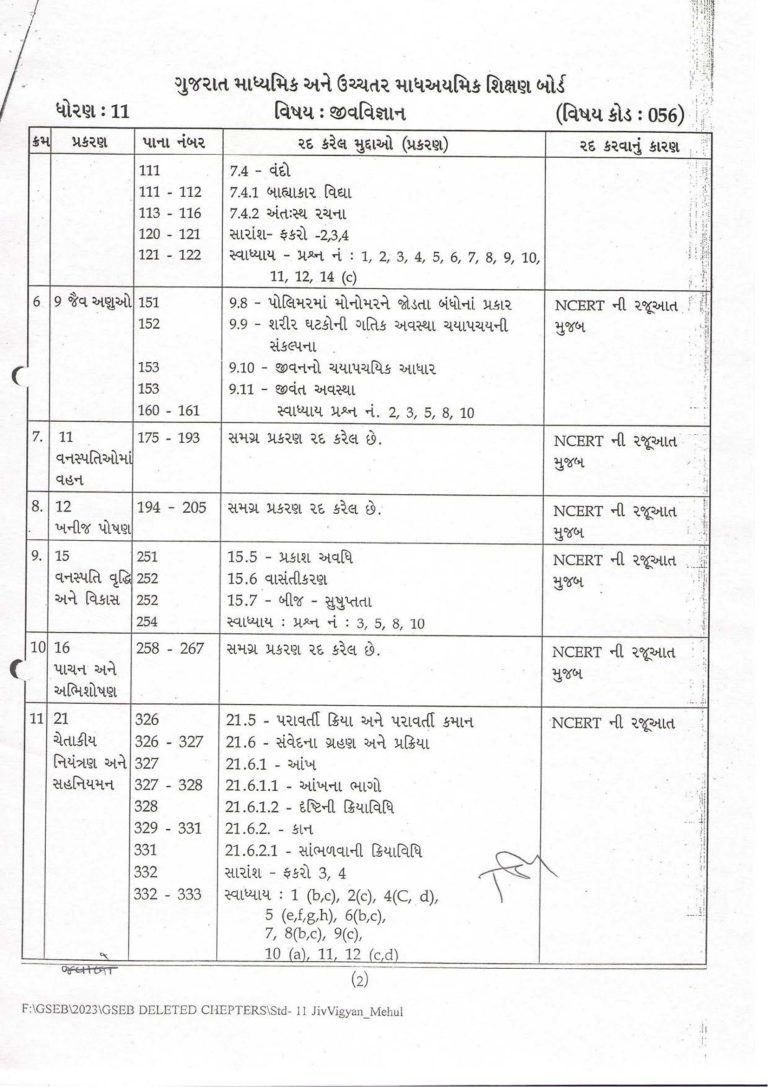 ગુજરાત માધ્યમિક અને ઉચ્ચતર માધઅયમિક શિક્ષણ બોર્ડ
ધોરણ : 11 વિષય : જીવવિજ્ઞાન (વિષય કોડ : 056)
ક્રમ પ્રકરણ પાના નંબર રદ કરેલ મુદ્દાઓ (પ્રકરણ) રદ કરવાનું કારણ
111 7.4 - વંદો
111 - 112 7.4.1 બાહ્યાકાર વિદ્યા
113 - 116 7.4.2 અંતઃસ્થ રચના
120 - 121 સારાંશ- ફકરો -2,3,4
121 - 122 સ્વાધ્યાય - પ્રશ્ન નં : 1, 2, 3, 4, 5, 6, 7, 8, 9, 10,
11, 12, 14 (c)
6 9 જૈવ અણુઓ 151 9.8 - પોલિમરમાં મોનોમરને જોડતા બંધોનાં પ્રકાર NCERT ની રજૂઆત
152 9.9 - શરીર ઘટકોની ગતિક અવસ્થા ચયાપચયની મુજબ
સંકલ્પના
153 9.10 - જીવનનો ચયાપચયિક આધાર
153 9.11 - જીવંત અવસ્થા
160 - 161 સ્વાધ્યાય પ્રશ્ન નં. 2, 3, 5, 8, 10
7. 11 175 - 193 સમગ્ર પ્રકરણ રદ કરેલ છે. NCERT ની રજૂઆત
વનસ્પતિઓમાં મુજબ
વહન
8. 12 194 - 205 સમગ્ર પ્રકરણ રદ કરેલ છે. NCERT ની રજૂઆત
ખનીજ પોષણ મુજબ
9. 15 251 15.5 - પ્રકાશ અવધિ NCERT ની રજૂઆત
વનસ્પતિ વૃદ્ધિ 252 15.6 વાસંતીકરણ મુજબ
અને વિકાસ 252 15.7 - બીજ - સુષુપ્તતા
254 સ્વાધ્યાય : પ્રશ્ન નં : 3, 5, 8, 10
10 16 258 - 267 સમગ્ર પ્રકરણ રદ કરેલ છે. NCERT ની રજૂઆત
પાચન અને મુજબ
અભિશોષણ
11 21 326 21.5 - પરાવર્તી ક્રિયા અને પરાવર્તી કમાન NCERT ની રજૂઆત
ચેતાકીય 326 - 327 21.6 - સંવેદના ગ્રહણ અને પ્રક્રિયા
નિયંત્રણ અને 327 21.6.1 - આંખ
સહનિયમન 327 - 328 21.6.1.1 - આંખના ભાગો
328 21.6.1.2 - દૃષ્ટિની ક્રિયાવિધિ
329 - 331 21.6.2. - કાન
331 21.6.2.1 - સાંભળવાની ક્રિયાવિધિ
332 સારાંશ - ફકરો 3, 4
332 - 333 સ્વાધ્યાય : 1 (b,c), 2(c), 4(C, d),
5 (e,f,g,h), 6(b,c),
7, 8(b,c), 9(c),
10 (a), 11, 12 (c,d)
(2)
F:\GSEB\2023\GSEB DELETED CHEPTERS\Std- 11 JivVigyan_Mehul